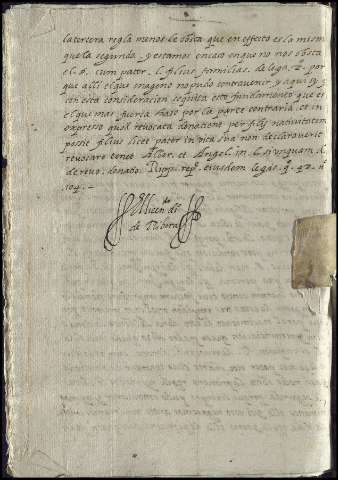 la tercera regla menos obsta que en effecto es la mism
que la segunda, y estamos en caso en que no nos obsta
el §. cum pater. l. filius familias. de lega. 2. por
que alli el que no pudo contravenir, y aqui si y
con esta consideracion se quita este fundamento que es
el que mas fuerça haze por la parte contraria. et in
expresso quod revocata donatione per filij nativitatem
possit filius licet pater in vita sua non declaraverit
revocare tenet et Angel. in. l. si unquam. C.
de revo. donatio. eiusdem legis. q. 42. nº
104.
de Ribera